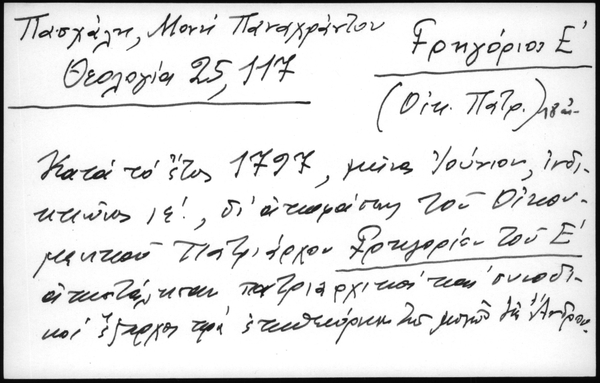 Πασχάλη, Μονή Παναχράντου
Θεολογία 25, 117
Γρηγόριος Ε΄
(Οἰκ. Πατρ.)
Κατά τό ἔτος 1797, μῆνα Ἰούνιον, ἰνδι-
κτιῶνος ιέ., δι' ἀποφάσεως τοῦ Οἰκου-
μενικοῦ Πατριάρχου Γρηγορίου τοῦ Ε΄
ἀπεστάλησαν πατριαρχικοί καί συνοδι-
κοί ἔξαρχοι πρός ἐπιθεώρησιν τῆς μονῆς ἐν Ἄνδρῳ.